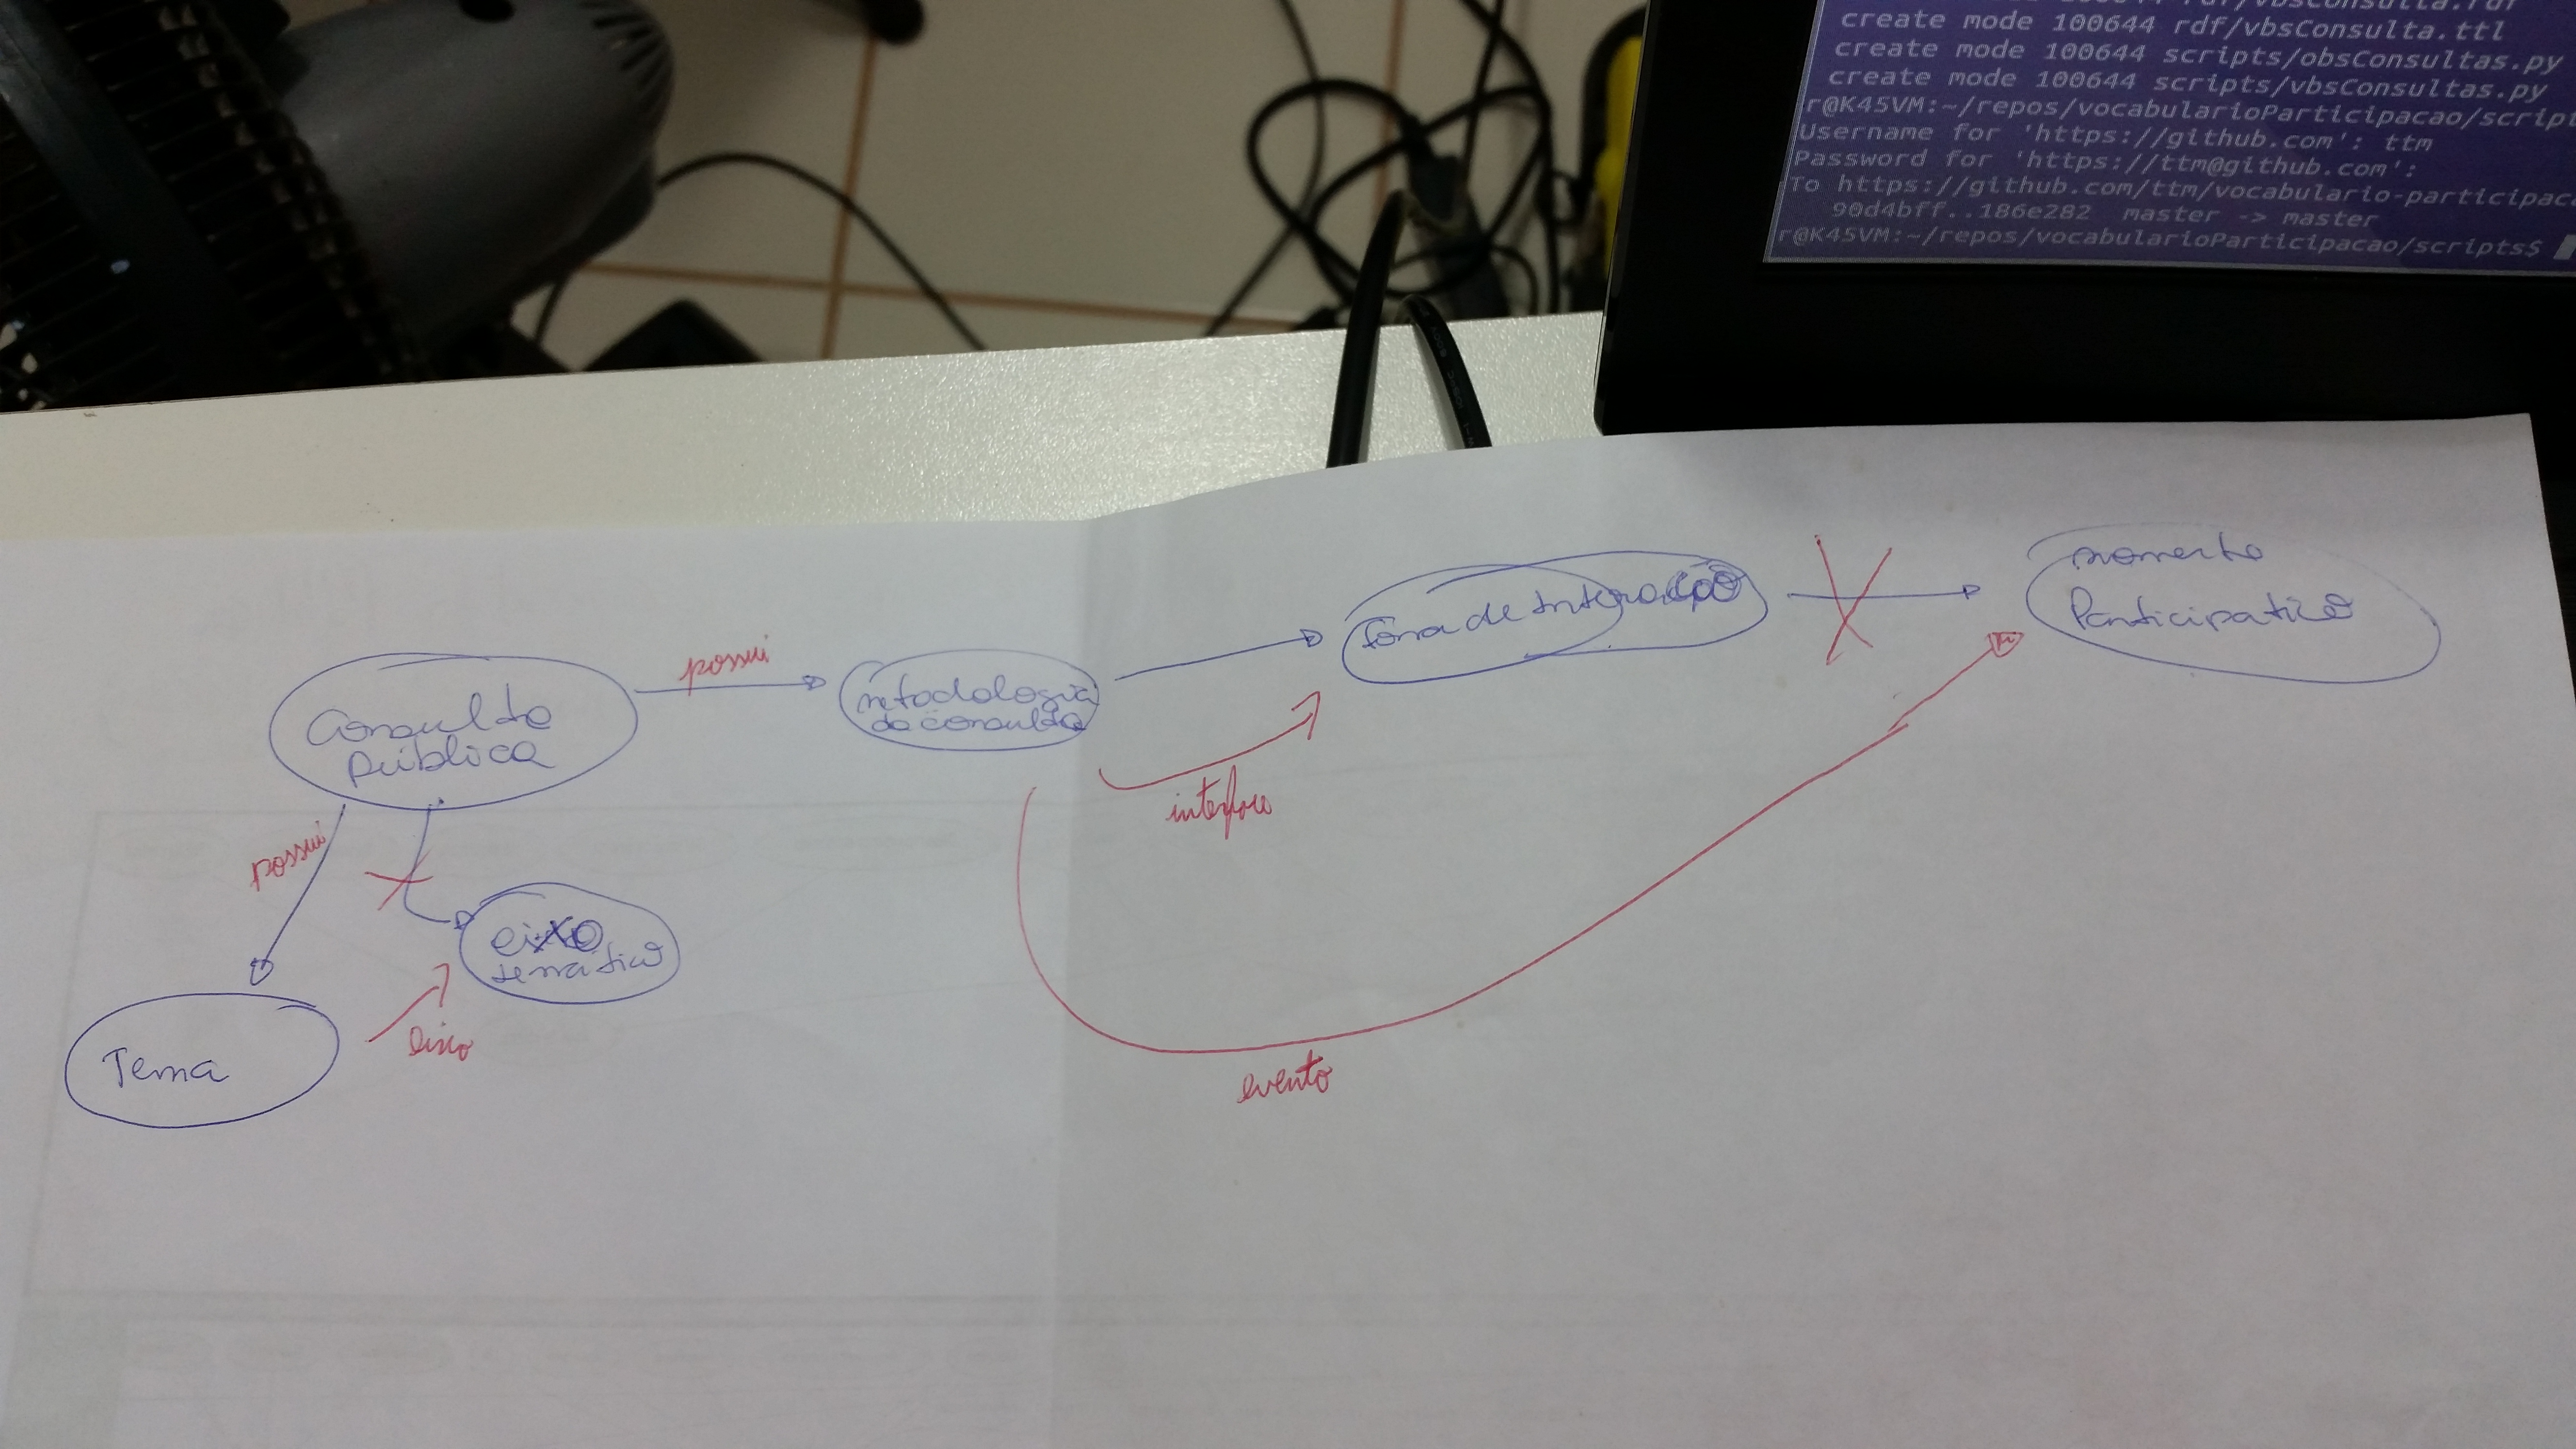 create mode 100644 rdf/vbsConsulta.ttl
create mode 100644 scripts/obsConsultas.py
create mode 100644 scripts/vbsConsultas.py
r@K45VM:~/repos/vocabularioParticipacao/script
Username for 'https://github.com': ttm
Password for 'https://ttm@github.com':
To https://github.com/ttm/vocabulario-participac
90d4bff..186e282 master -> master
r@K45VM:~/repos/vocabularioParticipacao/scripts$
momento
Participativo
forma de Interação
possui
metodologia
da consulta
Consulta
pública
interface
possui
eixo
temático
eixo
Tema
evento